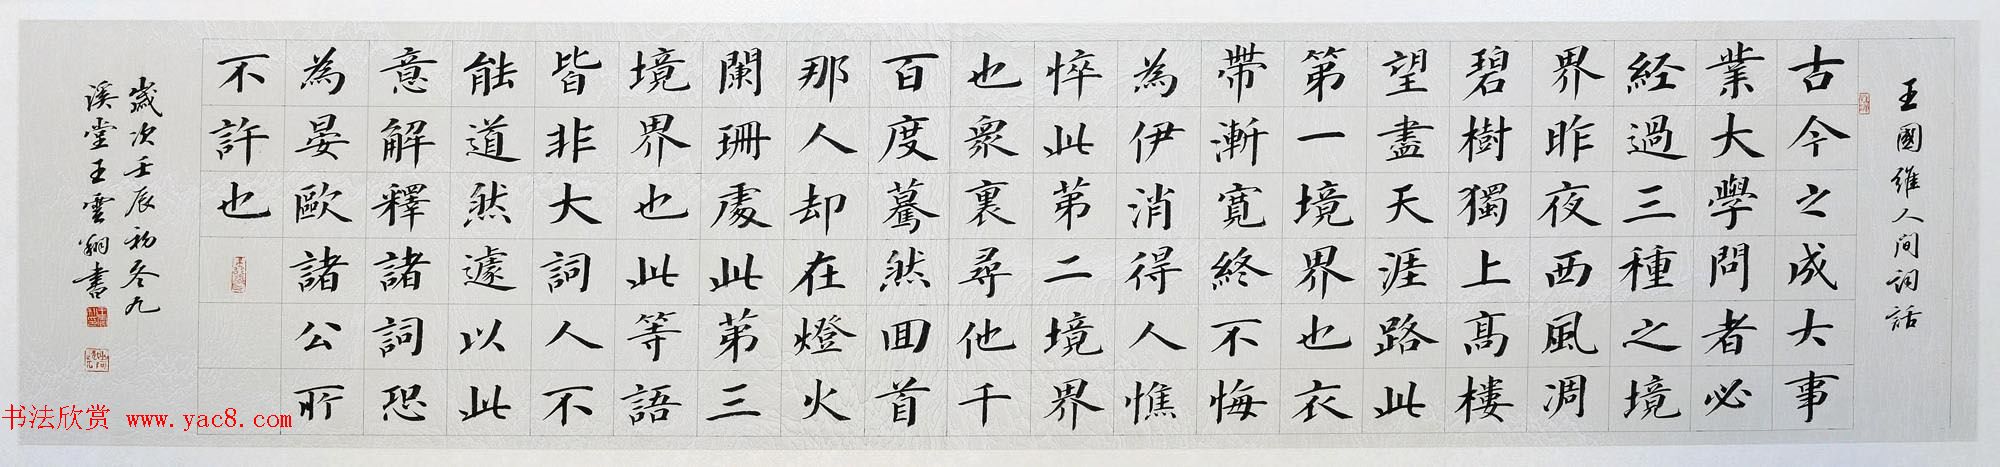 王國維人间词話
古今之成大事
業大學問者必
経過三種之境
界昨夜西風凋
碧樹獨上高樓
望盡天涯路此
第一境界也衣
帶漸寬終不悔
為伊消得人憔
悴此第二境界
也衆裏尋他千
百度驀然回首
那人却在燈火
闌珊處此第三
境界也此等語
皆非大詞人不
能道然遽以此
意解釋諸詞恐
為晏歐諸公所
不許也
歲次壬辰初冬九
溪堂王雲翔書
书法欣赏 www.yac8.com